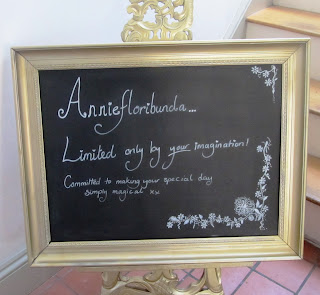 Anniefloribunda...
Limited only by your imagination!
Committed to making your special day
simply magical xx